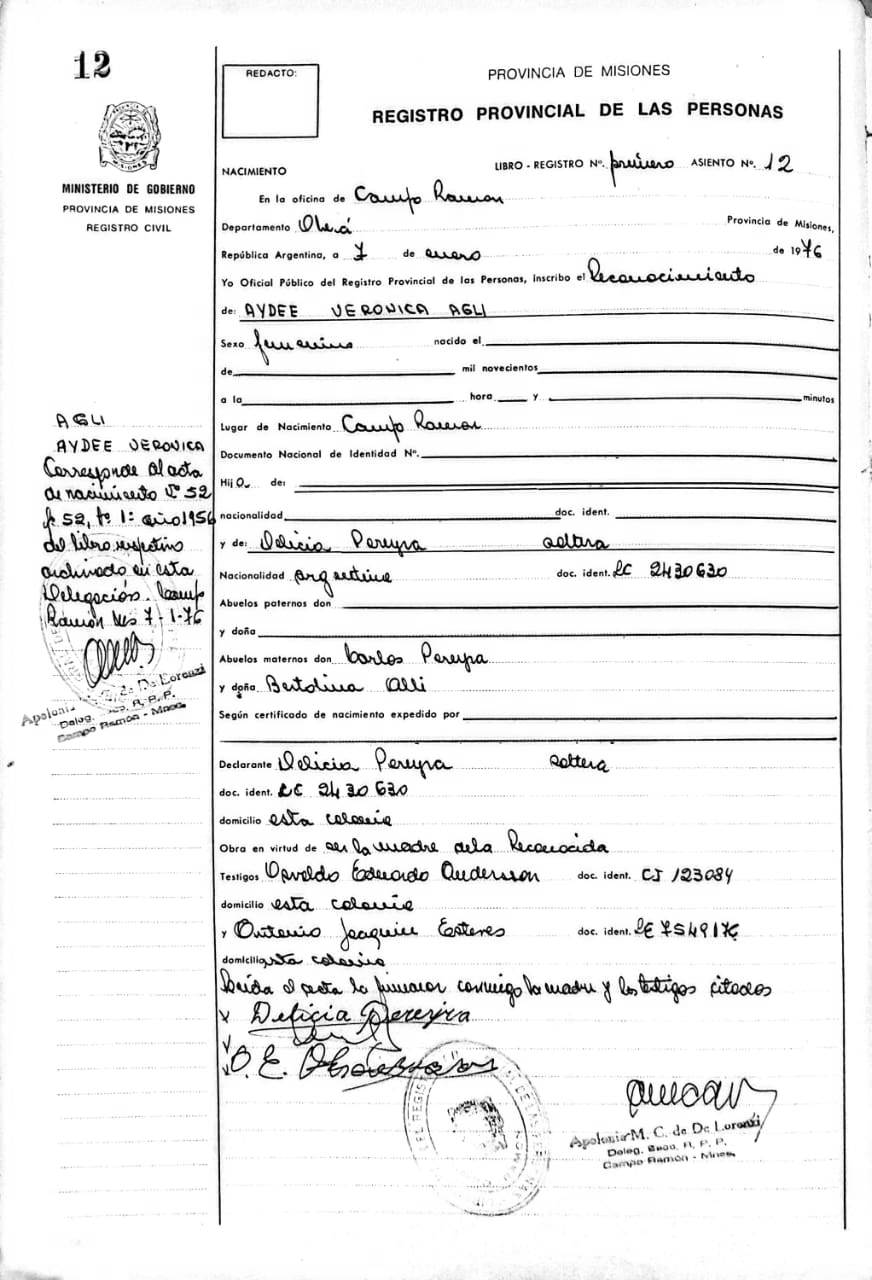 12
MINISTERIO DE GOBIERNO
PROVINCIA DE MISIONES
REGISTRO CIVIL
REDACTO:
PROVINCIA DE MISIONES
REGISTRO PROVINCIAL DE LAS PERSONAS
NACIMIENTO
LIBRO - REGISTRO Nº. primero ASIENTO Nº. 12
En la oficina de Campo Ramon
Departamento Oberá Provincia de Misiones,
República Argentina, a 7 de enero de 1976
Yo Oficial Público del Registro Provincial de las Personas, inscribo el Reconocimiento
de: AYDEE VERONICA AGLI
Sexo femenino nacido el
de mil novecientos
a la hora y minutos
Lugar de Nacimiento Campo Ramon
Documento Nacional de Identidad Nº.
Hija de:
nacionalidad doc. ident.
y de: Delicia Pereyra soltera
Nacionalidad argentina doc. ident. LC 2430630
Abuelos paternos don
y doña
Abuelos maternos don Carlos Pereyra
y doña Bertolina Alli
Según certificado de nacimiento expedido por
Declarante Delicia Pereyra soltera
doc. ident. LC 2430630
domicilio esta colonia
Obra en virtud de ser la madre de la Reconocida
Testigos Osvaldo Eduardo Anderson doc. ident. CI 123084
domicilio esta colonia
y Antonio Joaquin Esteres doc. ident. LE 7549176
domicilio esta colonia
Leida el acta la firmaron conmigo la madre y los testigos citados
x Delicia Pereyra
O. E.
Apolonia M. C. de De Lorenzi
Deleg. Secc. R. P. P.
Campo Ramón - Mnes.
AGLI
AYDEE VERONICA
Corresponde al acta
de nacimiento Nº 52
fº 52, tº 1º año 1956
del libro respectivo
archivado en esta
Delegación. Campo
Ramón Ms 7-1-76
Apolonia C. de De Lorenzi
Deleg. Secc. R. P. P.
Campo Ramón - Mnes.